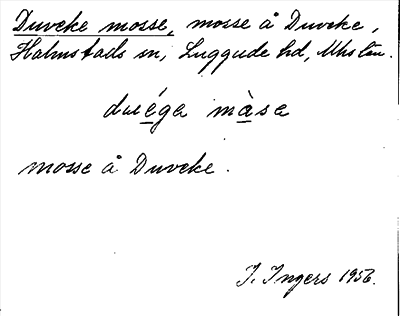 Duveke mosse, mosse å Duveke,
Halmstads sn, Luggude hd, Mhs län.
duéga màsa
mosse å Duveke.
I. Ingers 1956.